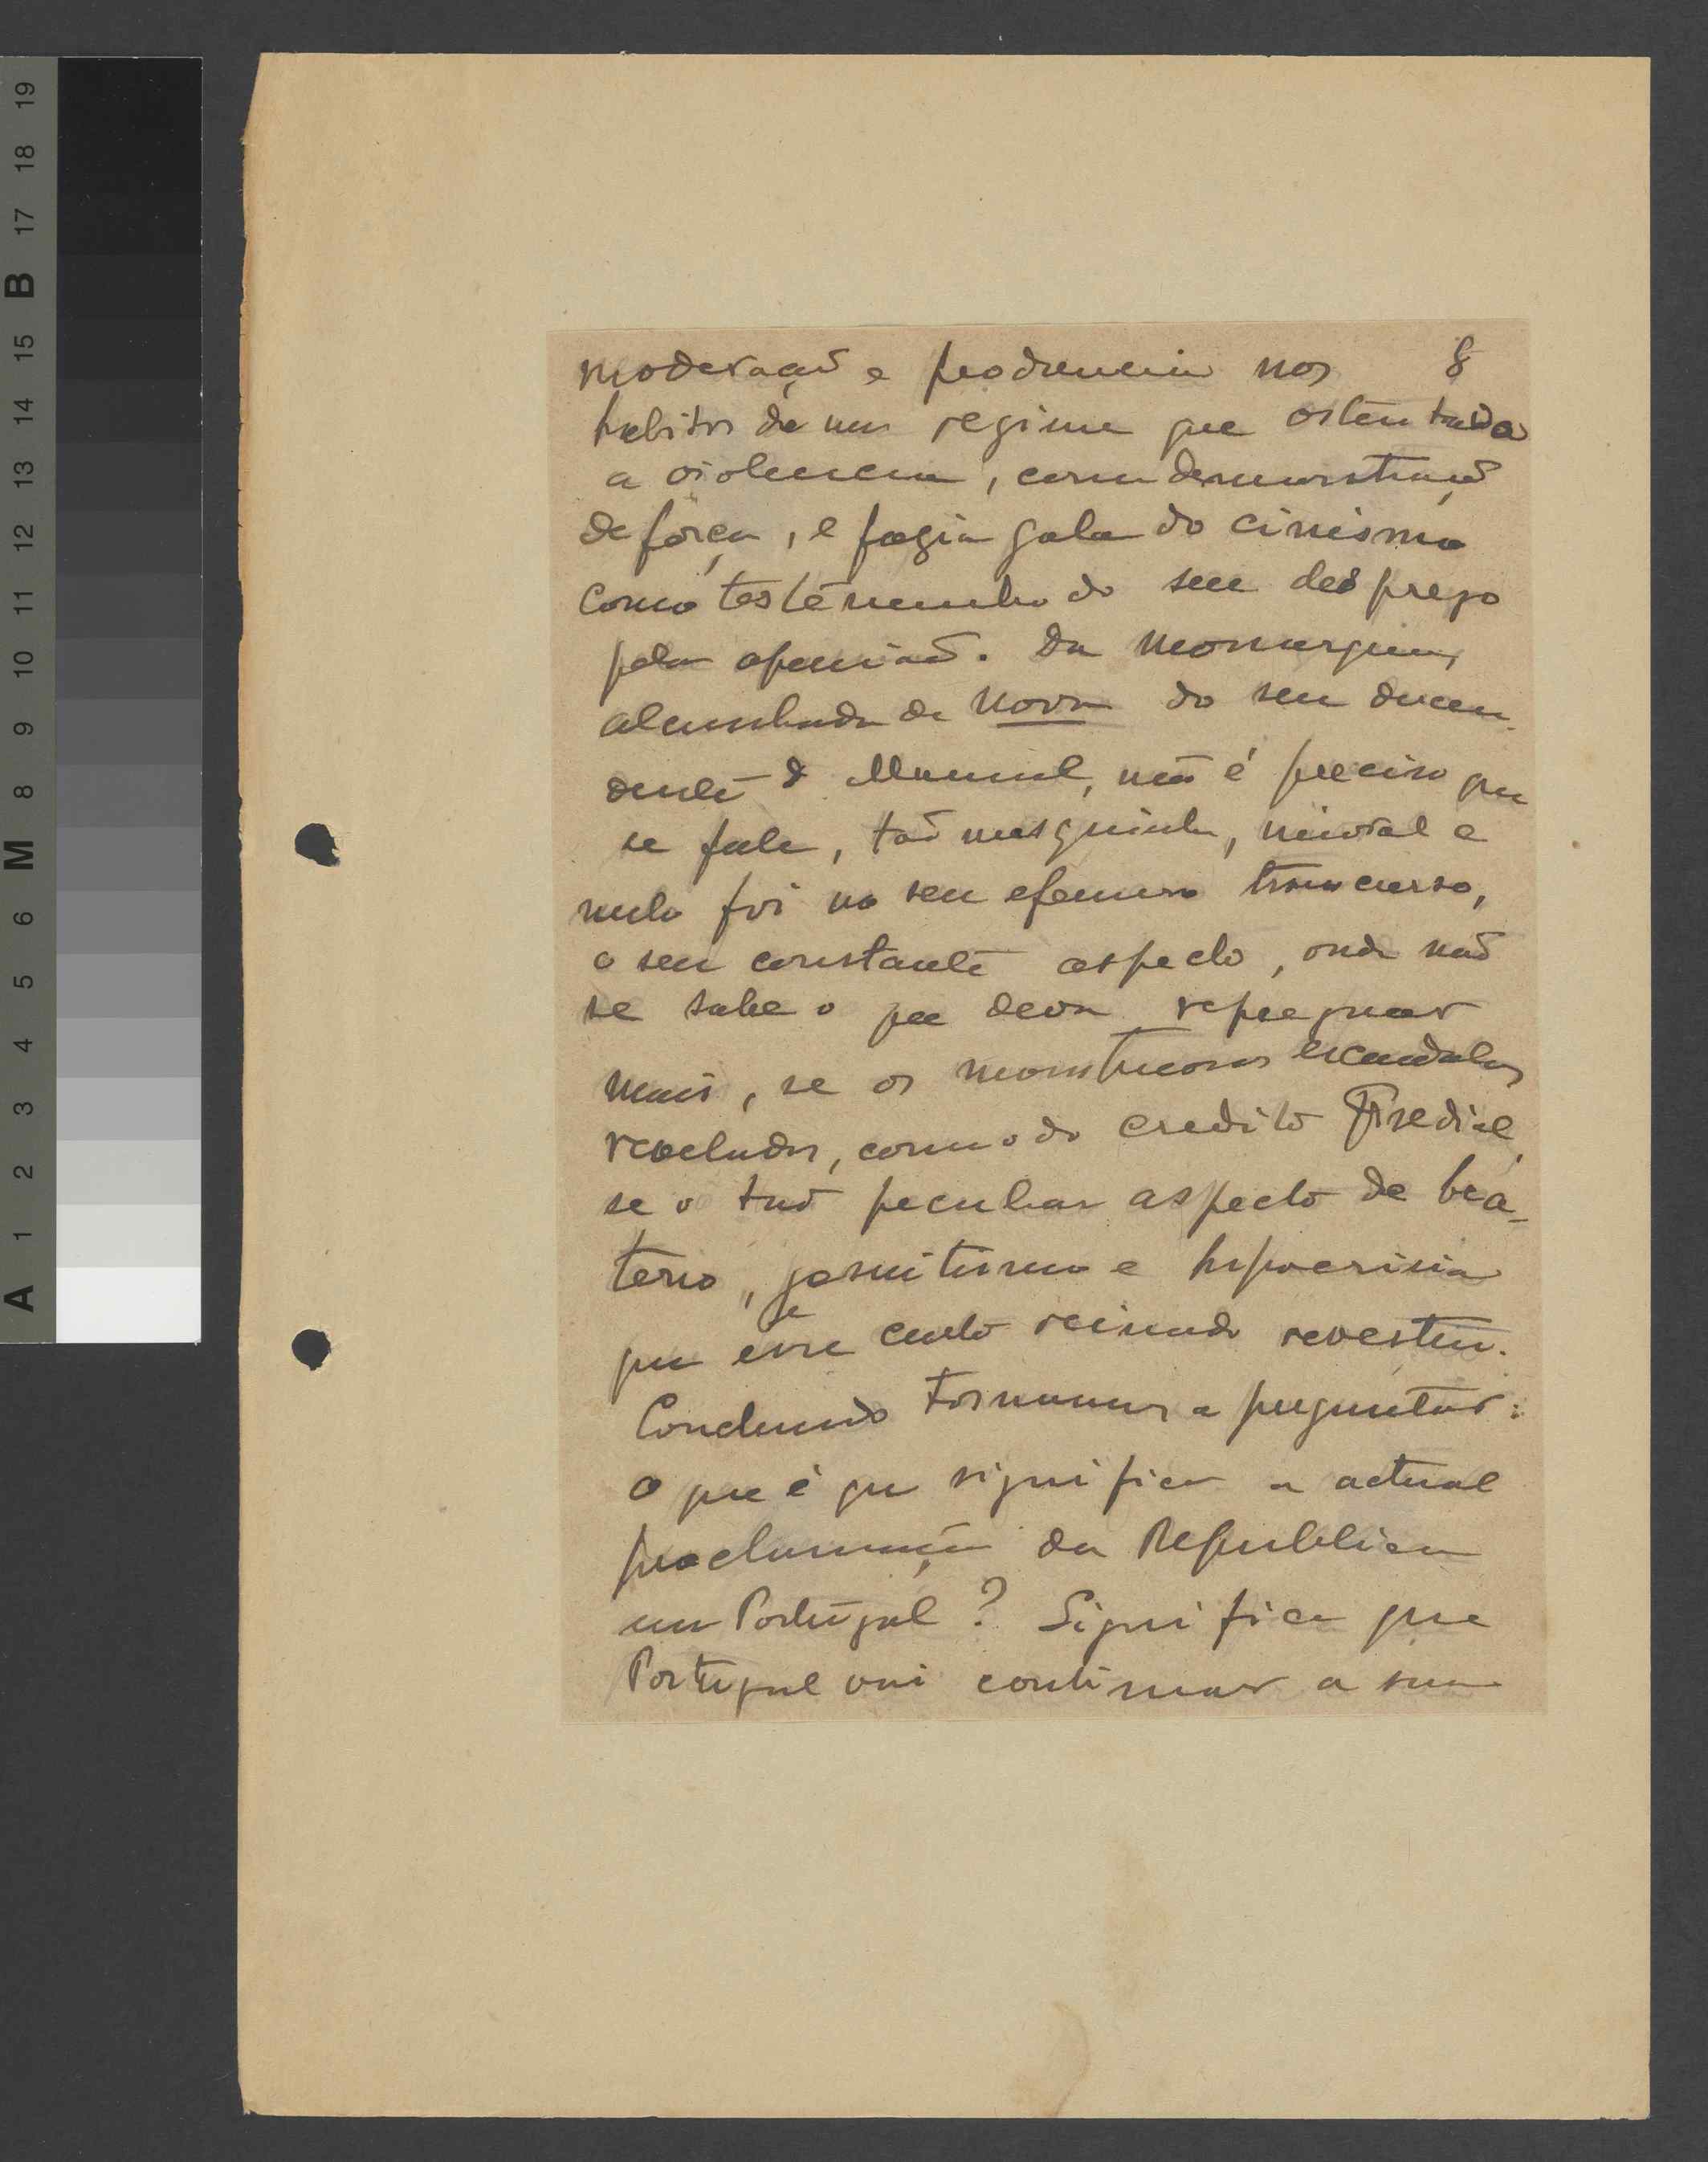 moderação e prodencia nos 8
habitos de um regime que ostentava
a violencia, como demonstração
de força, e fazia gala do cinismo
como testemunho do seu desprezo
pela openião. Da Monarquia,
alcunhada de Nova do seu
dente D. Manuel, não é preciso que
se fale, tão mesquinha, e
nulo foi no seu efemero transcurso,
o seu constante aspecto, onde não
se sabe o que deva repugnar
mais, se os monstruosos escandalos
revelados, como o do Credito Predial,
se o tão peculiar aspecto de bea-
terio, jesuitismo e hipocrisia
que esse curto reinado revestiu.
Concluindo tornamos a preguntar:
O que é que significa a actual
proclamação da Republica
em Portugal? Significa que
Portugal vai continuar a sua